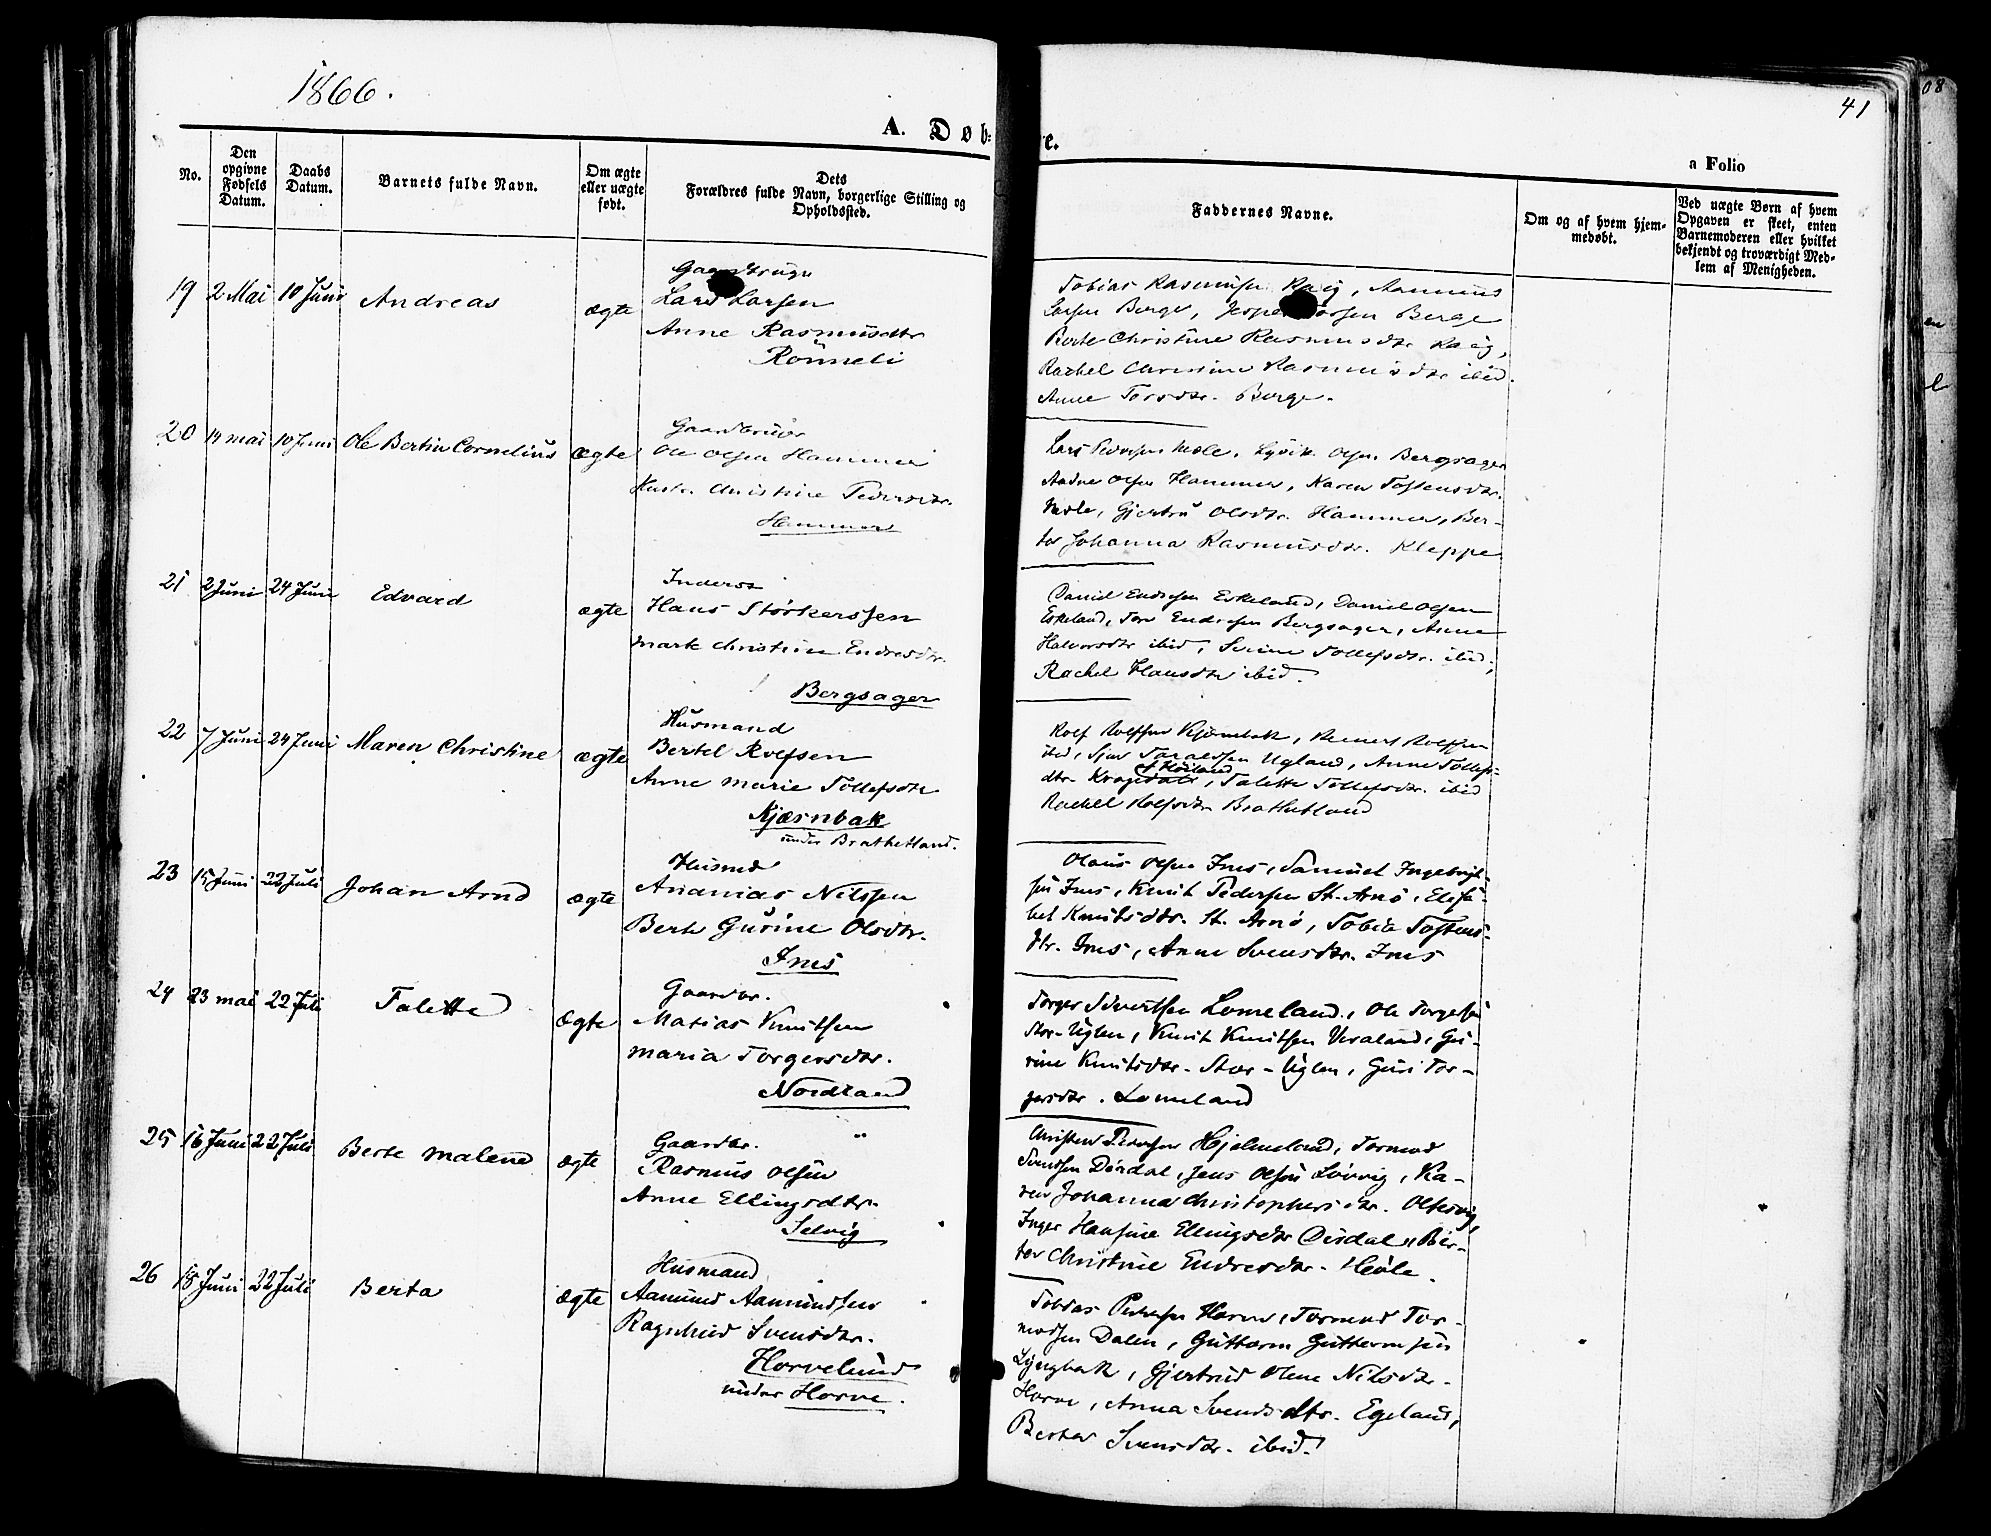 1866.
41
08
A. Døb=
e.
a Folio
No.
Den opgivne Fødsels Datum.
Daabs Datum.
Barnets fulde Navn.
Om ægte eller uægte født.
Dets Forældres fulde Navn, borgerlige Stilling og Opholdssted.
Faddernes Navne.
Om og af hvem hjemmedøbt.
Ved uægte Børn af hvem Opgaven er skeet, enten Barnemoderen eller hvilket bekjendt og troværdigt Medlem af Menigheden.
19 2 Mai 10 Juni Andreas ægte
Lars Larsen
Anne Rasmusdtr
Rönneli
Tobias Rasmusen Aamund
Larsen Berge, Jesper Larsen Berge
Berte Christine Rasmusdtr
Rachel Christine Rasmusdtr ibid.
Anne Torsdtr. Berge.
20 14 mai 10 Juni Ole Bertin Cornelius ægte
Gaardbruger
Ole Olsen Hammer
Christine Pedersdtr.
Hammer
Lars Pedersen Mæle, Olsen Bergsager
Aadne Olsen Hammer, Karen Tostensdtr.
Mæle, Gjertru Olsdtr. Hammer, Ber-
ta Johanna Rasmusdtr. Kleppe
21 2 Juni 24 Juni Edvard ægte
Inderst
Hans Störkerssen
Marte Christine Endresdtr.
Bergsager
Daniel Endresen Eskeland, Daniel Olsen
Eskeland, Tore Endresen Bergsager, Anne
Halvorsdtr ibid, Serine Tollefsdtr. ibid,
Rachel Hansdtr ibid.
22 7 Juni 24 Juni Maren Christine ægte
Husmand
Bertel Rolfsen
Anne Marie Tollefsdtr
Kjærnbak
under Brathetland.
Rolf Rolfsen Kjærnbak, Reinert Rolfsen
ibid, Sjur Taraldsen Ugland, Anne Tollefs-
dtr. Talette Tollefsdtr. ibid
Rachel Rolfsdtr Brathetland
23 15 Juni 22 Juli Johan Arnd ægte
Husmd
Ananias Nilssen
Berte Gurine Olsdtr.
Fnes
Olaus Olsen Fnes, Samuel Ingebrigt-
sen Fnes, Knut Pedersen St. Arnö, Elisa-
bet Knutsdtr. St. Arnö, Tobia Tostens-
dtr. Fnes, Anne Svensdtr. Fnes
24 23 mai 22 Juli Talette ægte
Gaardbr.
Matias Knutsen
Maria Torgersdtr.
Nordland
Torger Sivertsen Lomeland, Ole Torgersen
Stor-Uglen, Knut Knutsen Veraland, Gu-
rine Knutsdtr. Stor-Uglen, Guri Tor-
gersdtr. Lomeland
25 16 Juni 22 Juli Berte Malene ægte
Gaardbr.
Rasmus Olsen
Anne Ellingsdtr.
Selvig
Christen Pedersen Hjelmeland, Tormod
Svendsen Dirdal, Jens Olsen Ka-
ren Johanna Christophersdtr. Oltesvig,
Inger Hansine Ellingsdtr Dirdal, Ber-
ta Christine Endresdtr. Høle.
26 18 Juni 22 Juli Berta ægte
Husmand
Aamund Aamundsen
Ragnhild Svensdtr.
Horvelund
under Horve.
Tobias Pedersen Horve, Tormod Tor-
modsen Dalen, Guttorm Guttormsen
Lyngbak, Gjertrud Oline Nilsdtr.
Horve, Anna Svendsdtr. Egeland,
Berta Svensdtr. ibid.